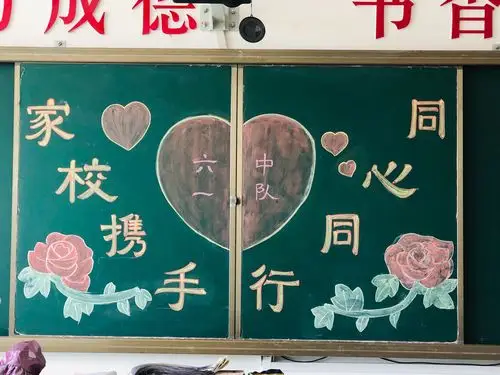 成德 书香
家校携手
六一
中队
同心同行